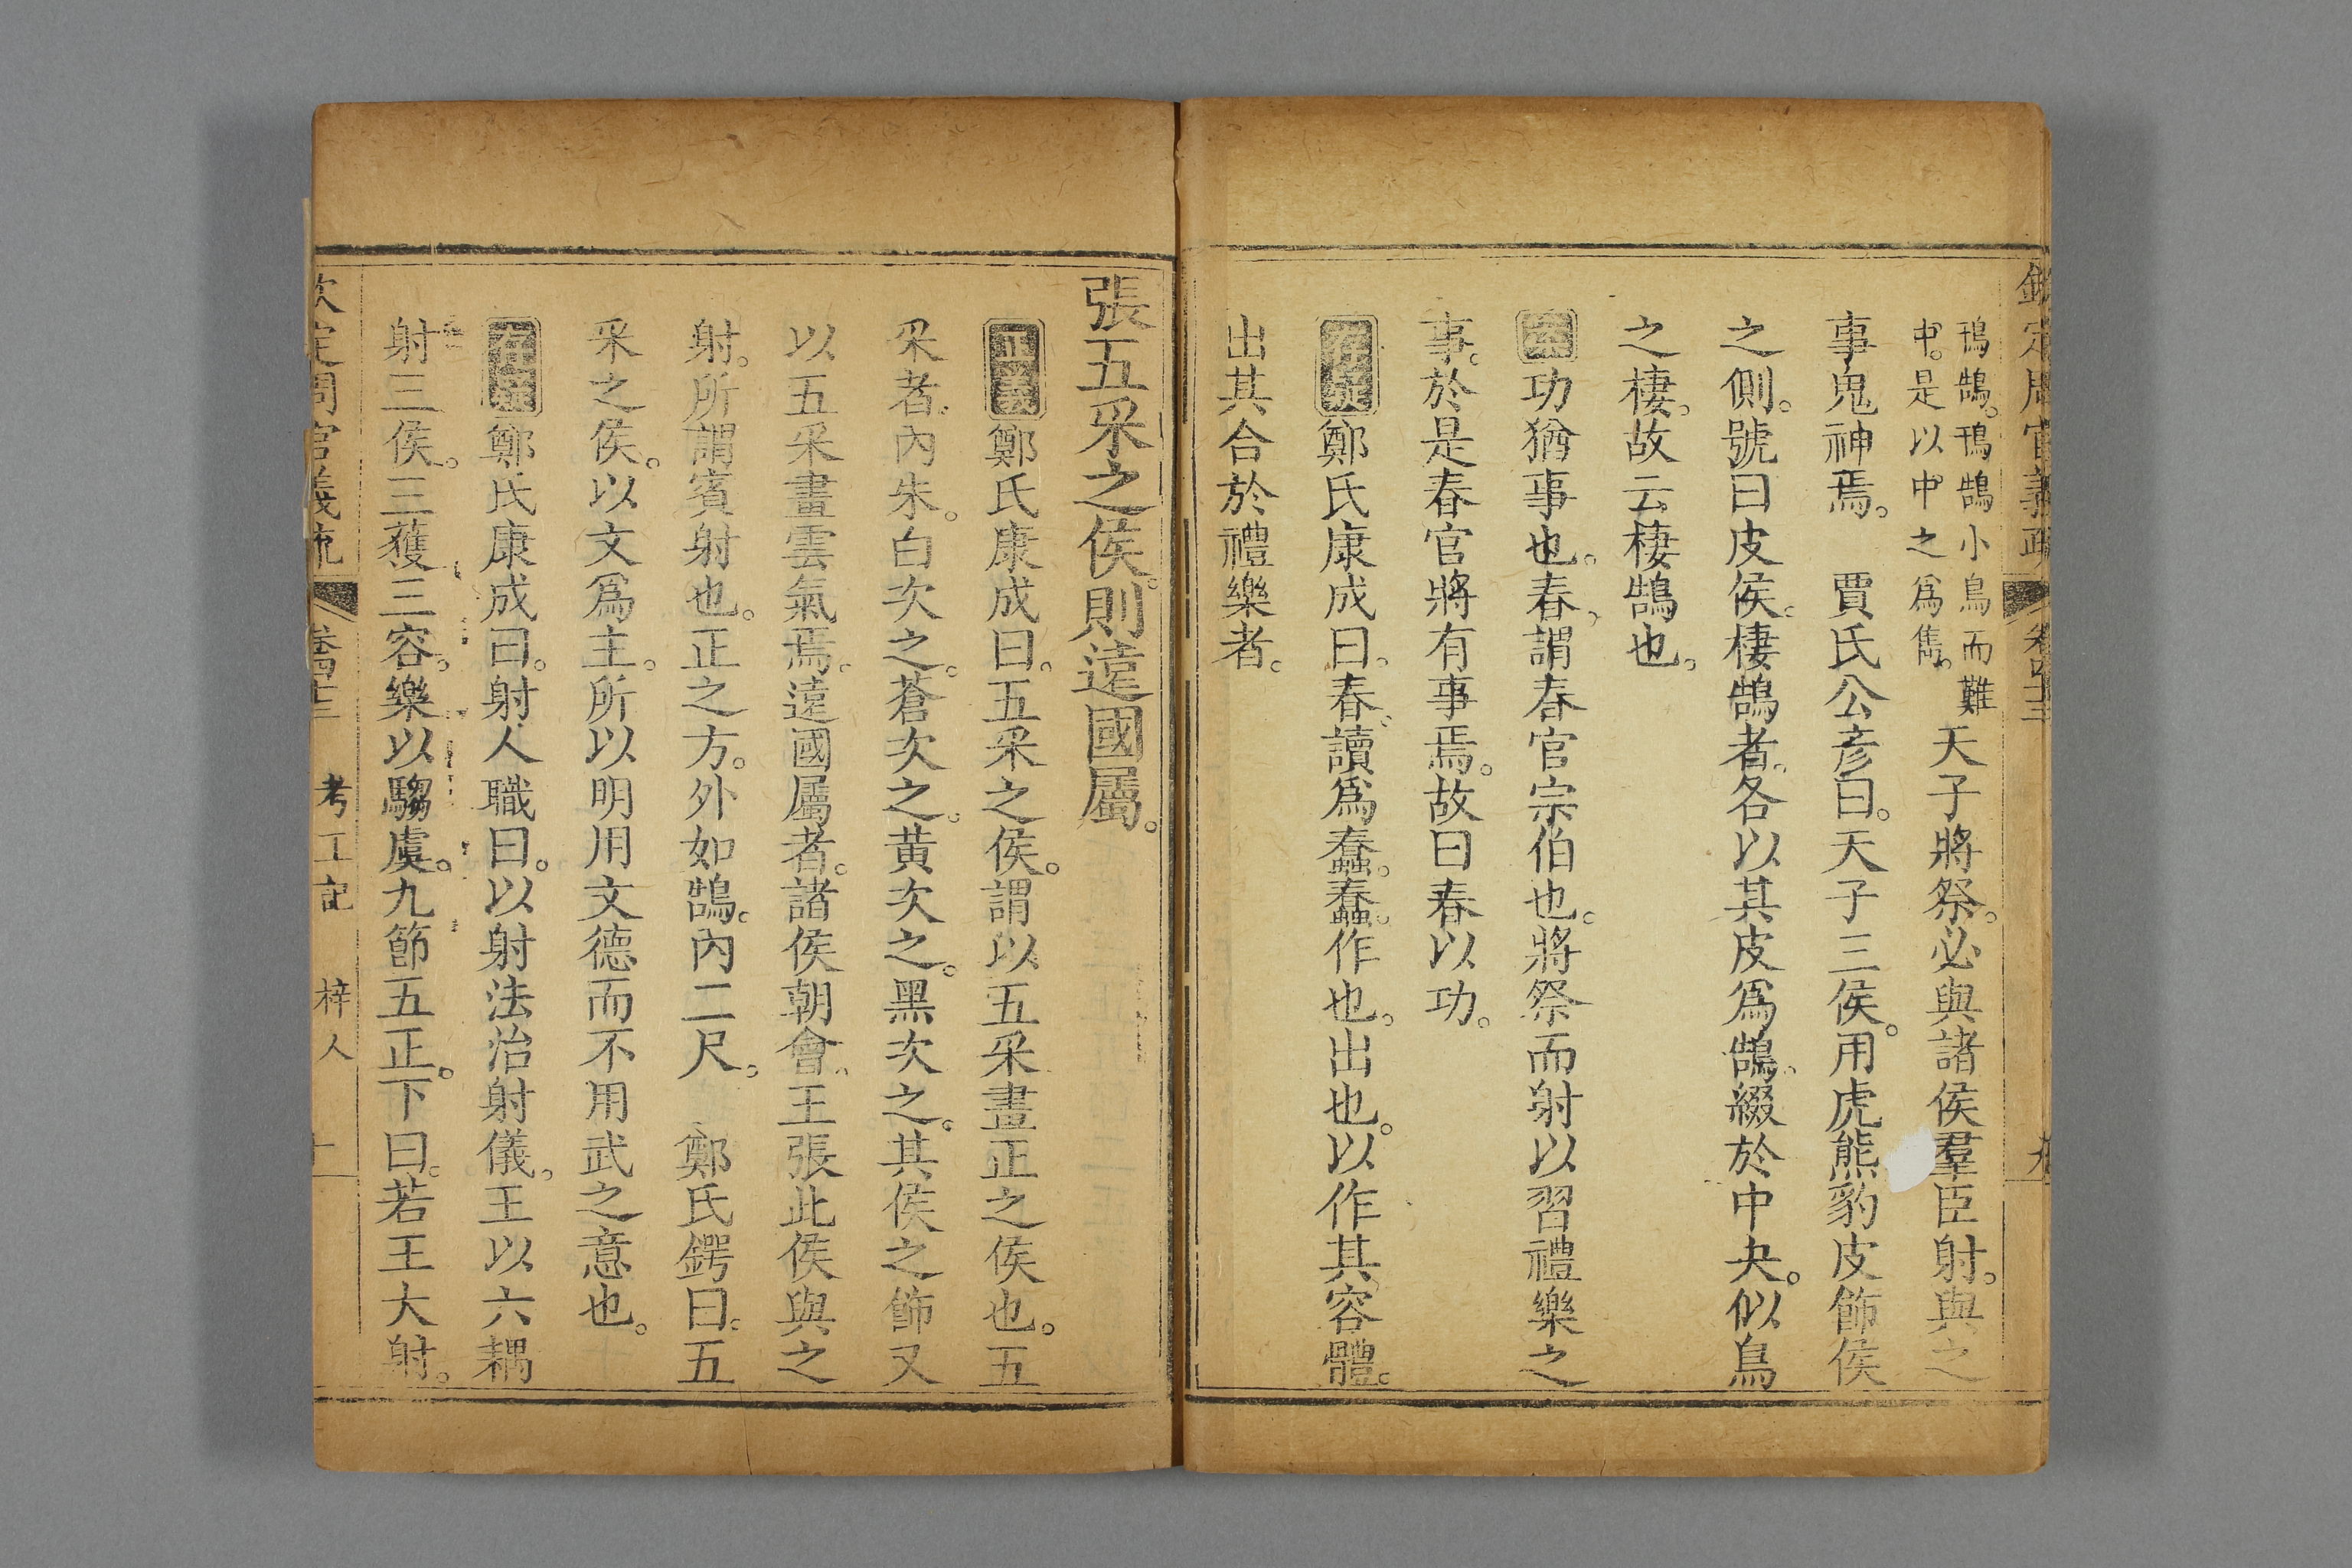 欽定周官義疏 卷四十三 九
鳱鵠。鳱鵠小鳥而難
中。是以中之爲雋。
天子將祭。必與諸侯羣臣射。與之
事鬼神焉。 賈氏公彦曰。天子三侯。用虎熊豹皮飾侯
之側。號曰皮侯。棲鵠者。各以其皮爲鵠。綴於中央。似鳥
之棲。故云棲鵠也。
案功猶事也。春。謂春官宗伯也。將祭而射以習禮樂之
事。於是春官將有事焉。故曰春以功。
存疑鄭氏康成曰。春。讀爲蠢。蠢。作也。出也。以作其容體。
出其合於禮樂者。
張五采之侯。則遠國屬。
正義鄭氏康成曰。五采之侯。謂以五采畫正之侯也。五
采者。內朱。白次之。蒼次之。黄次之。黑次之。其侯之飾又
以五采畫雲氣焉。遠國屬者。諸侯朝會。王張此侯與之
射。所謂賓射也。正之方。外如鵠。內二尺。 鄭氏鍔曰。五
采之侯。以文爲主。所以明用文德而不用武之意也。
存疑鄭氏康成曰。射人職曰。以射法治射儀。王以六耦
射三侯。三獲三容。樂以騶虞。九節五正。下曰。若王大射。
欽定周官義疏 卷四十三 考工記 梓人 十